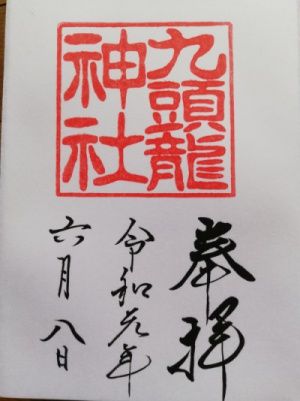 九頭龍
神社
奉拝
令和元年
六月八日